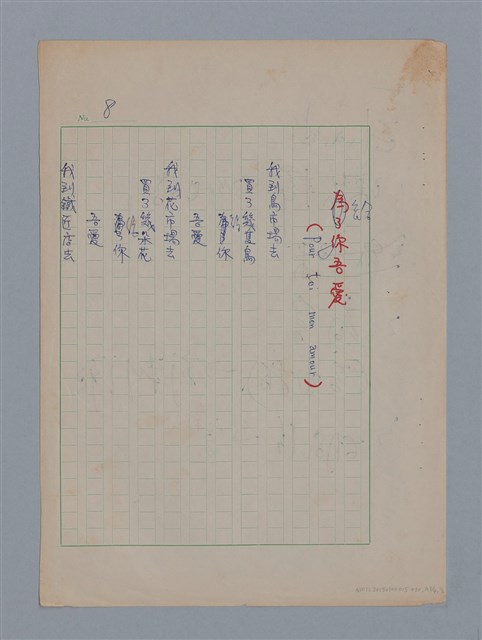 No. 8
給
為了你吾愛
(Pour toi mon amour)
我到鳥市場去
買了幾隻鳥
給為了你
吾愛
我到花市場去
買了幾朵花
給為了你
吾愛
我到鐵匠店去